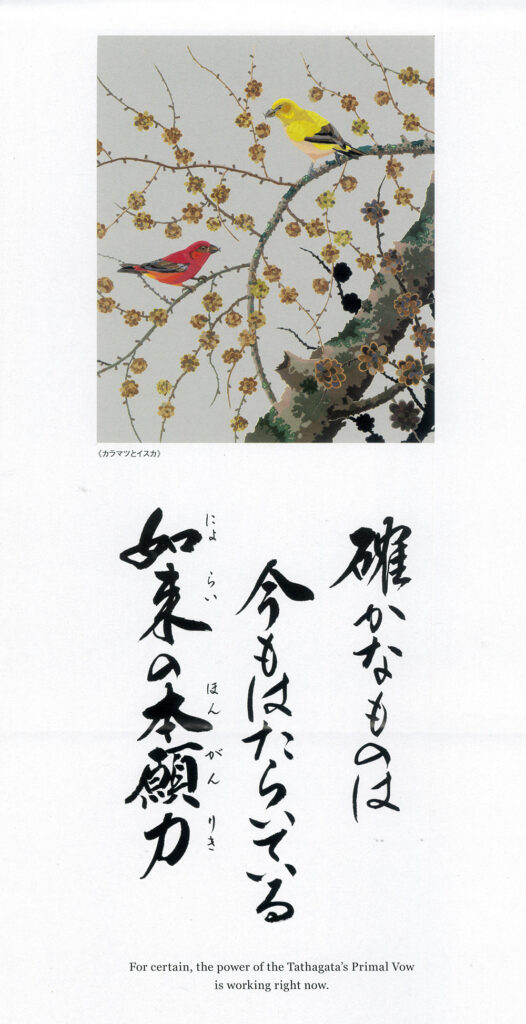 《カラマツとイスカ》
確かなものは
今もはたらいている
如来の本願力
にょ らい ほん がん りき
For certain, the power of the Tathagata's Primal Vow
is working right now.